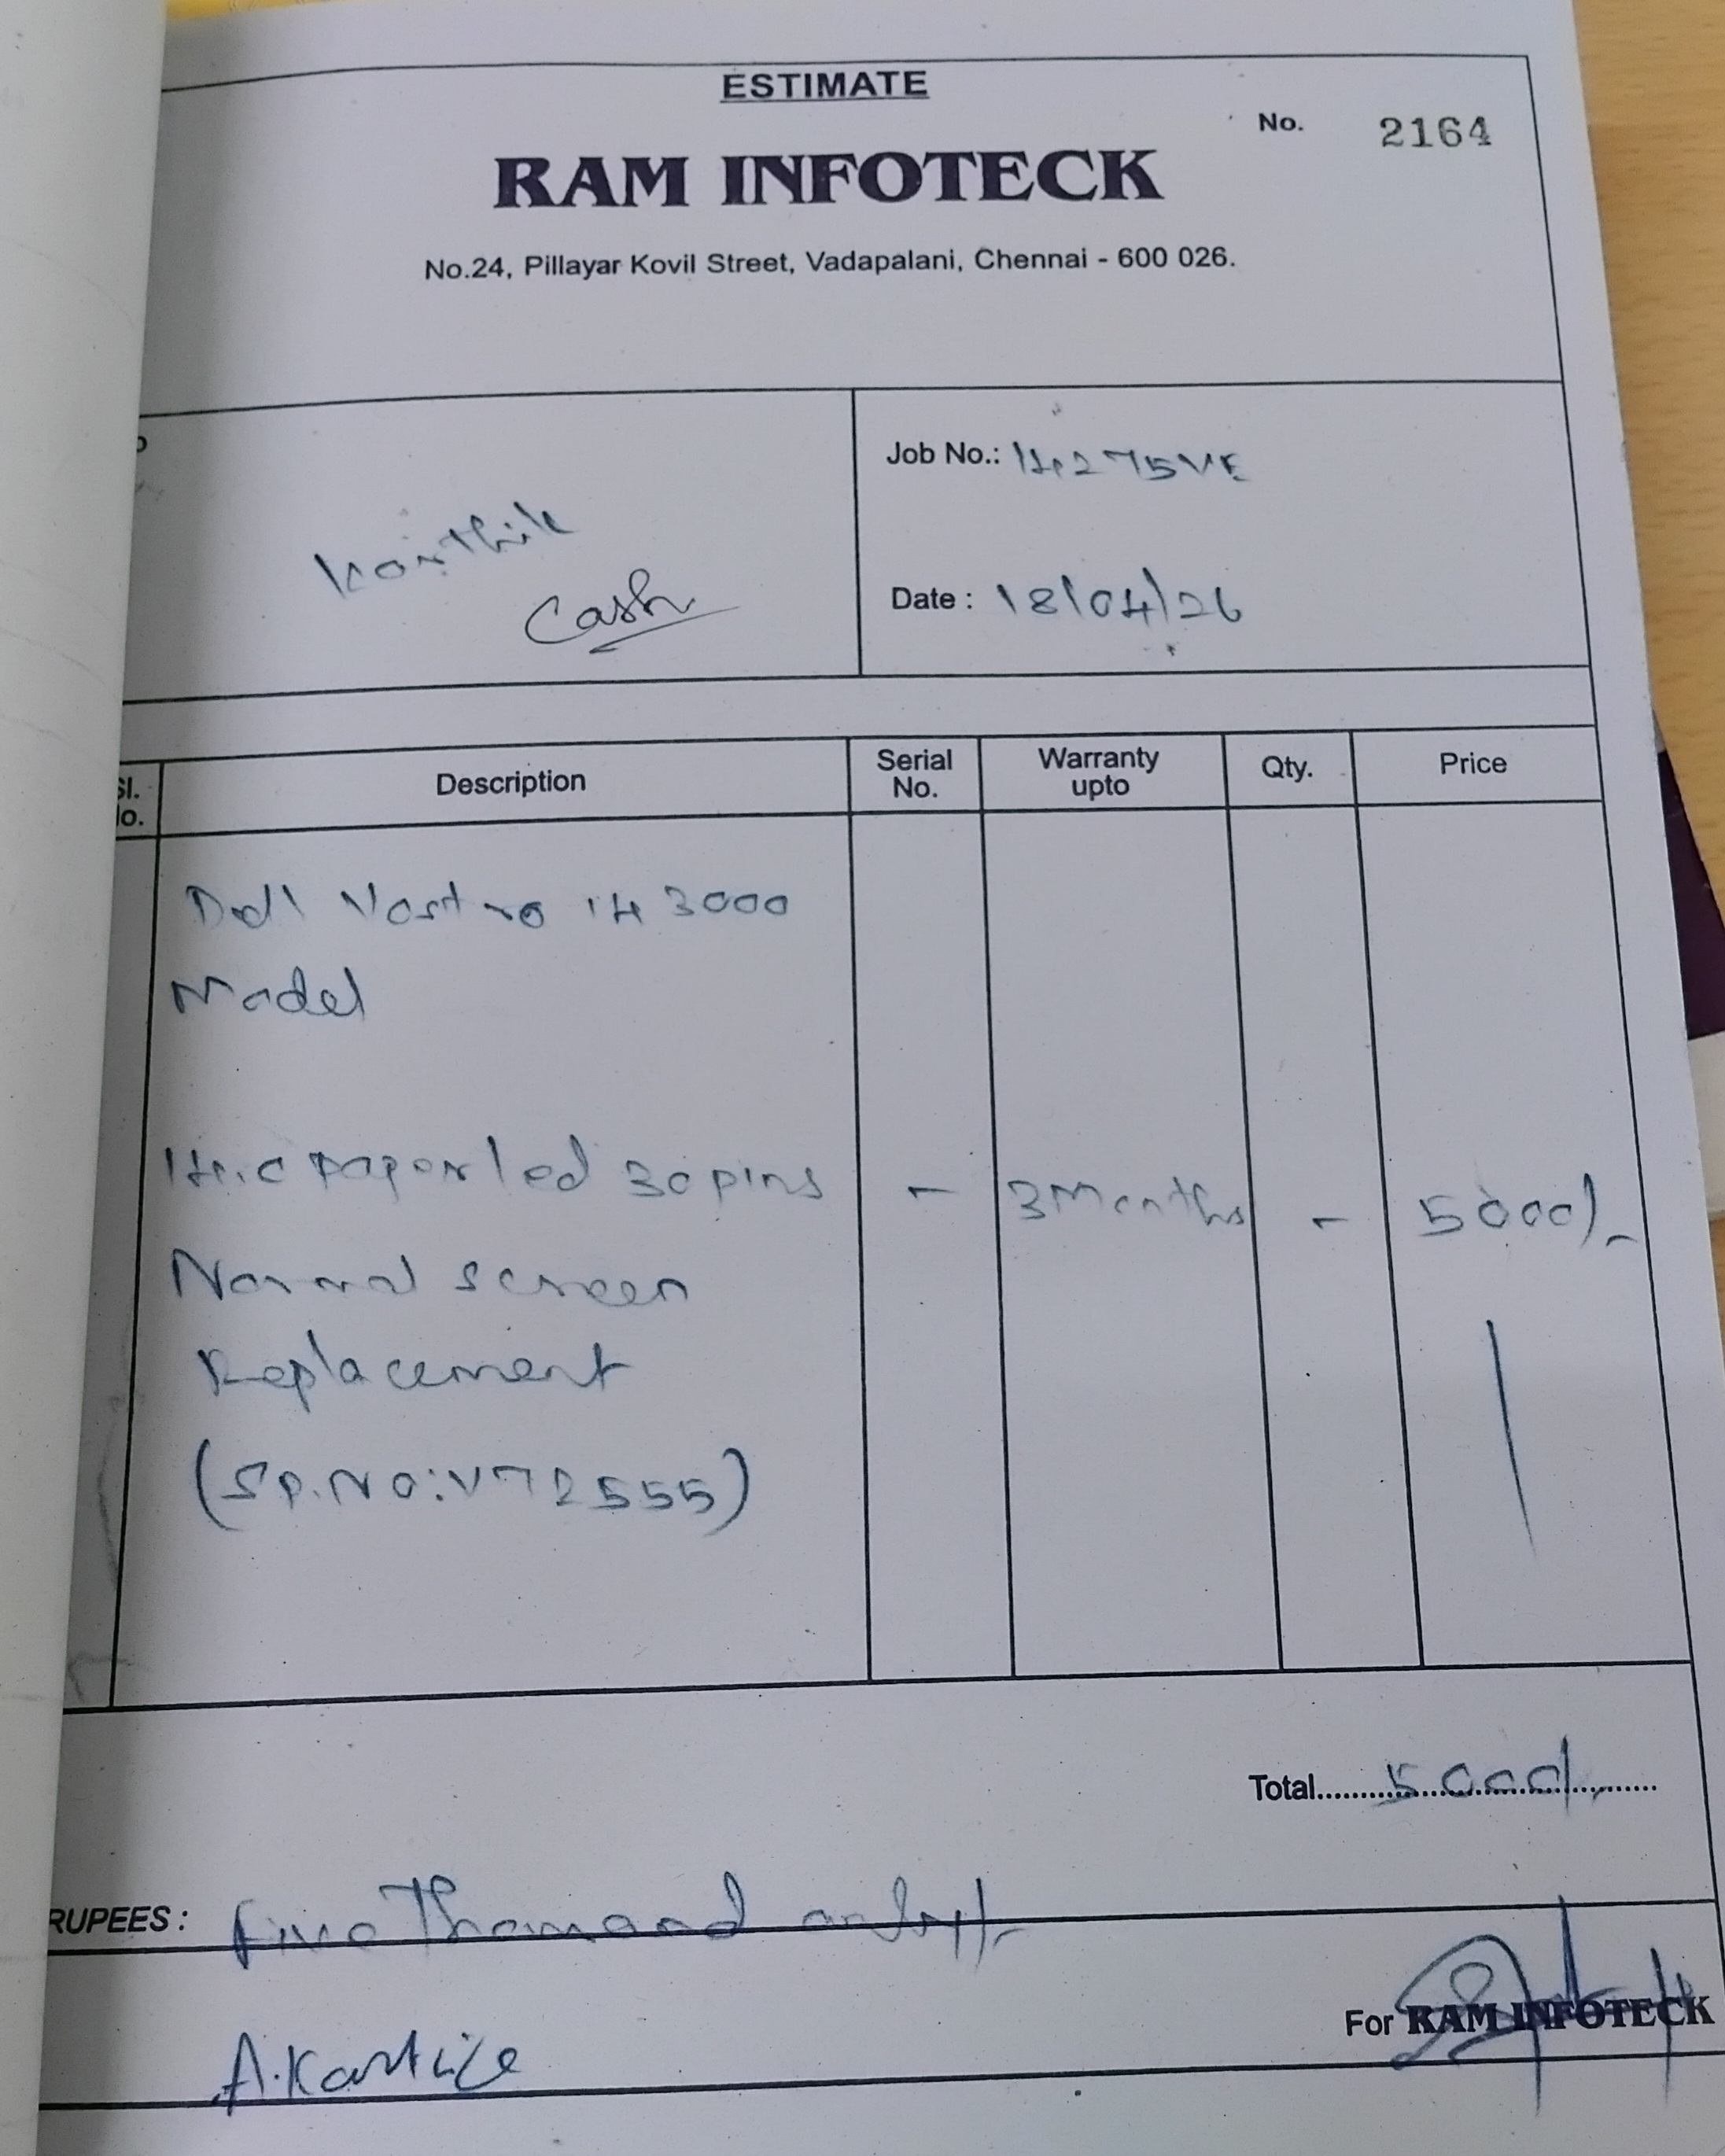 ESTIMATE
No. 2164
RAM INFOTECK
No.24, Pillayar Kovil Street, Vadapalani, Chennai - 600 026.
Job No.: 14275VE
Karthik
Cash
Date : 18/04/26
Sl. No. Description Serial No. Warranty upto Qty. Price
Dell Vostro 14 3000
Model
14.0 paper led 30 pins - 3 Months - 5000/-
Normal screen
Replacement
(SP.NO:V72555)
Total 5000/-
RUPEES : Five Thousand only/-
For RAM INFOTECK
A.Kartik